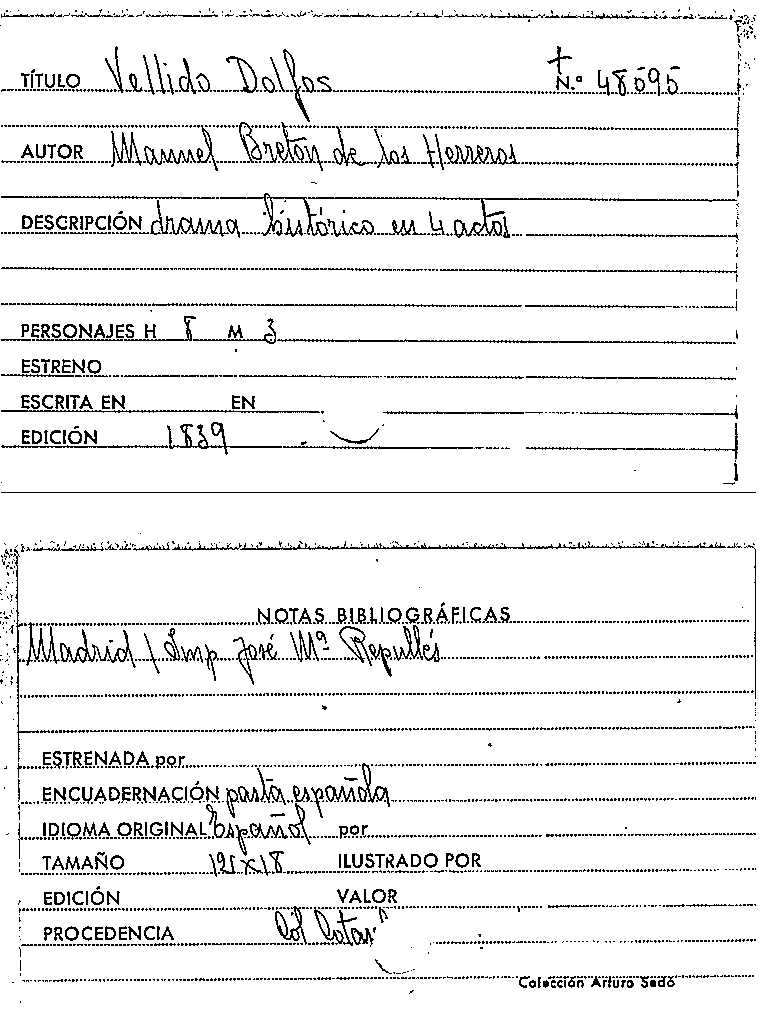 TÍTULO Vellido Dolfos N.º 48595
AUTOR Manuel Bretón de los Herreros
DESCRIPCIÓN drama histórico en 4 actos
PERSONAJES H 8 M 3
ESTRENO
ESCRITA EN EN
EDICIÓN 1839
NOTAS BIBLIOGRÁFICAS
Madrid / Imp José Mª Repullés
ESTRENADA por
ENCUADERNACIÓN pasta española
IDIOMA ORIGINAL Español por
TAMAÑO ILUSTRADO POR
EDICIÓN VALOR
PROCEDENCIA Col
Colección Arturo Sedó